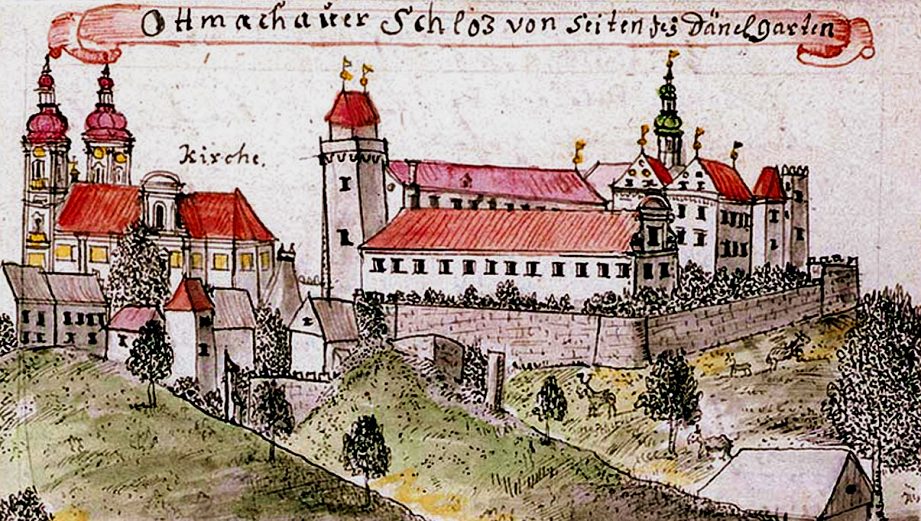 Ottmachauer Schlos von Seiten des Dänelgarten
Kirche.